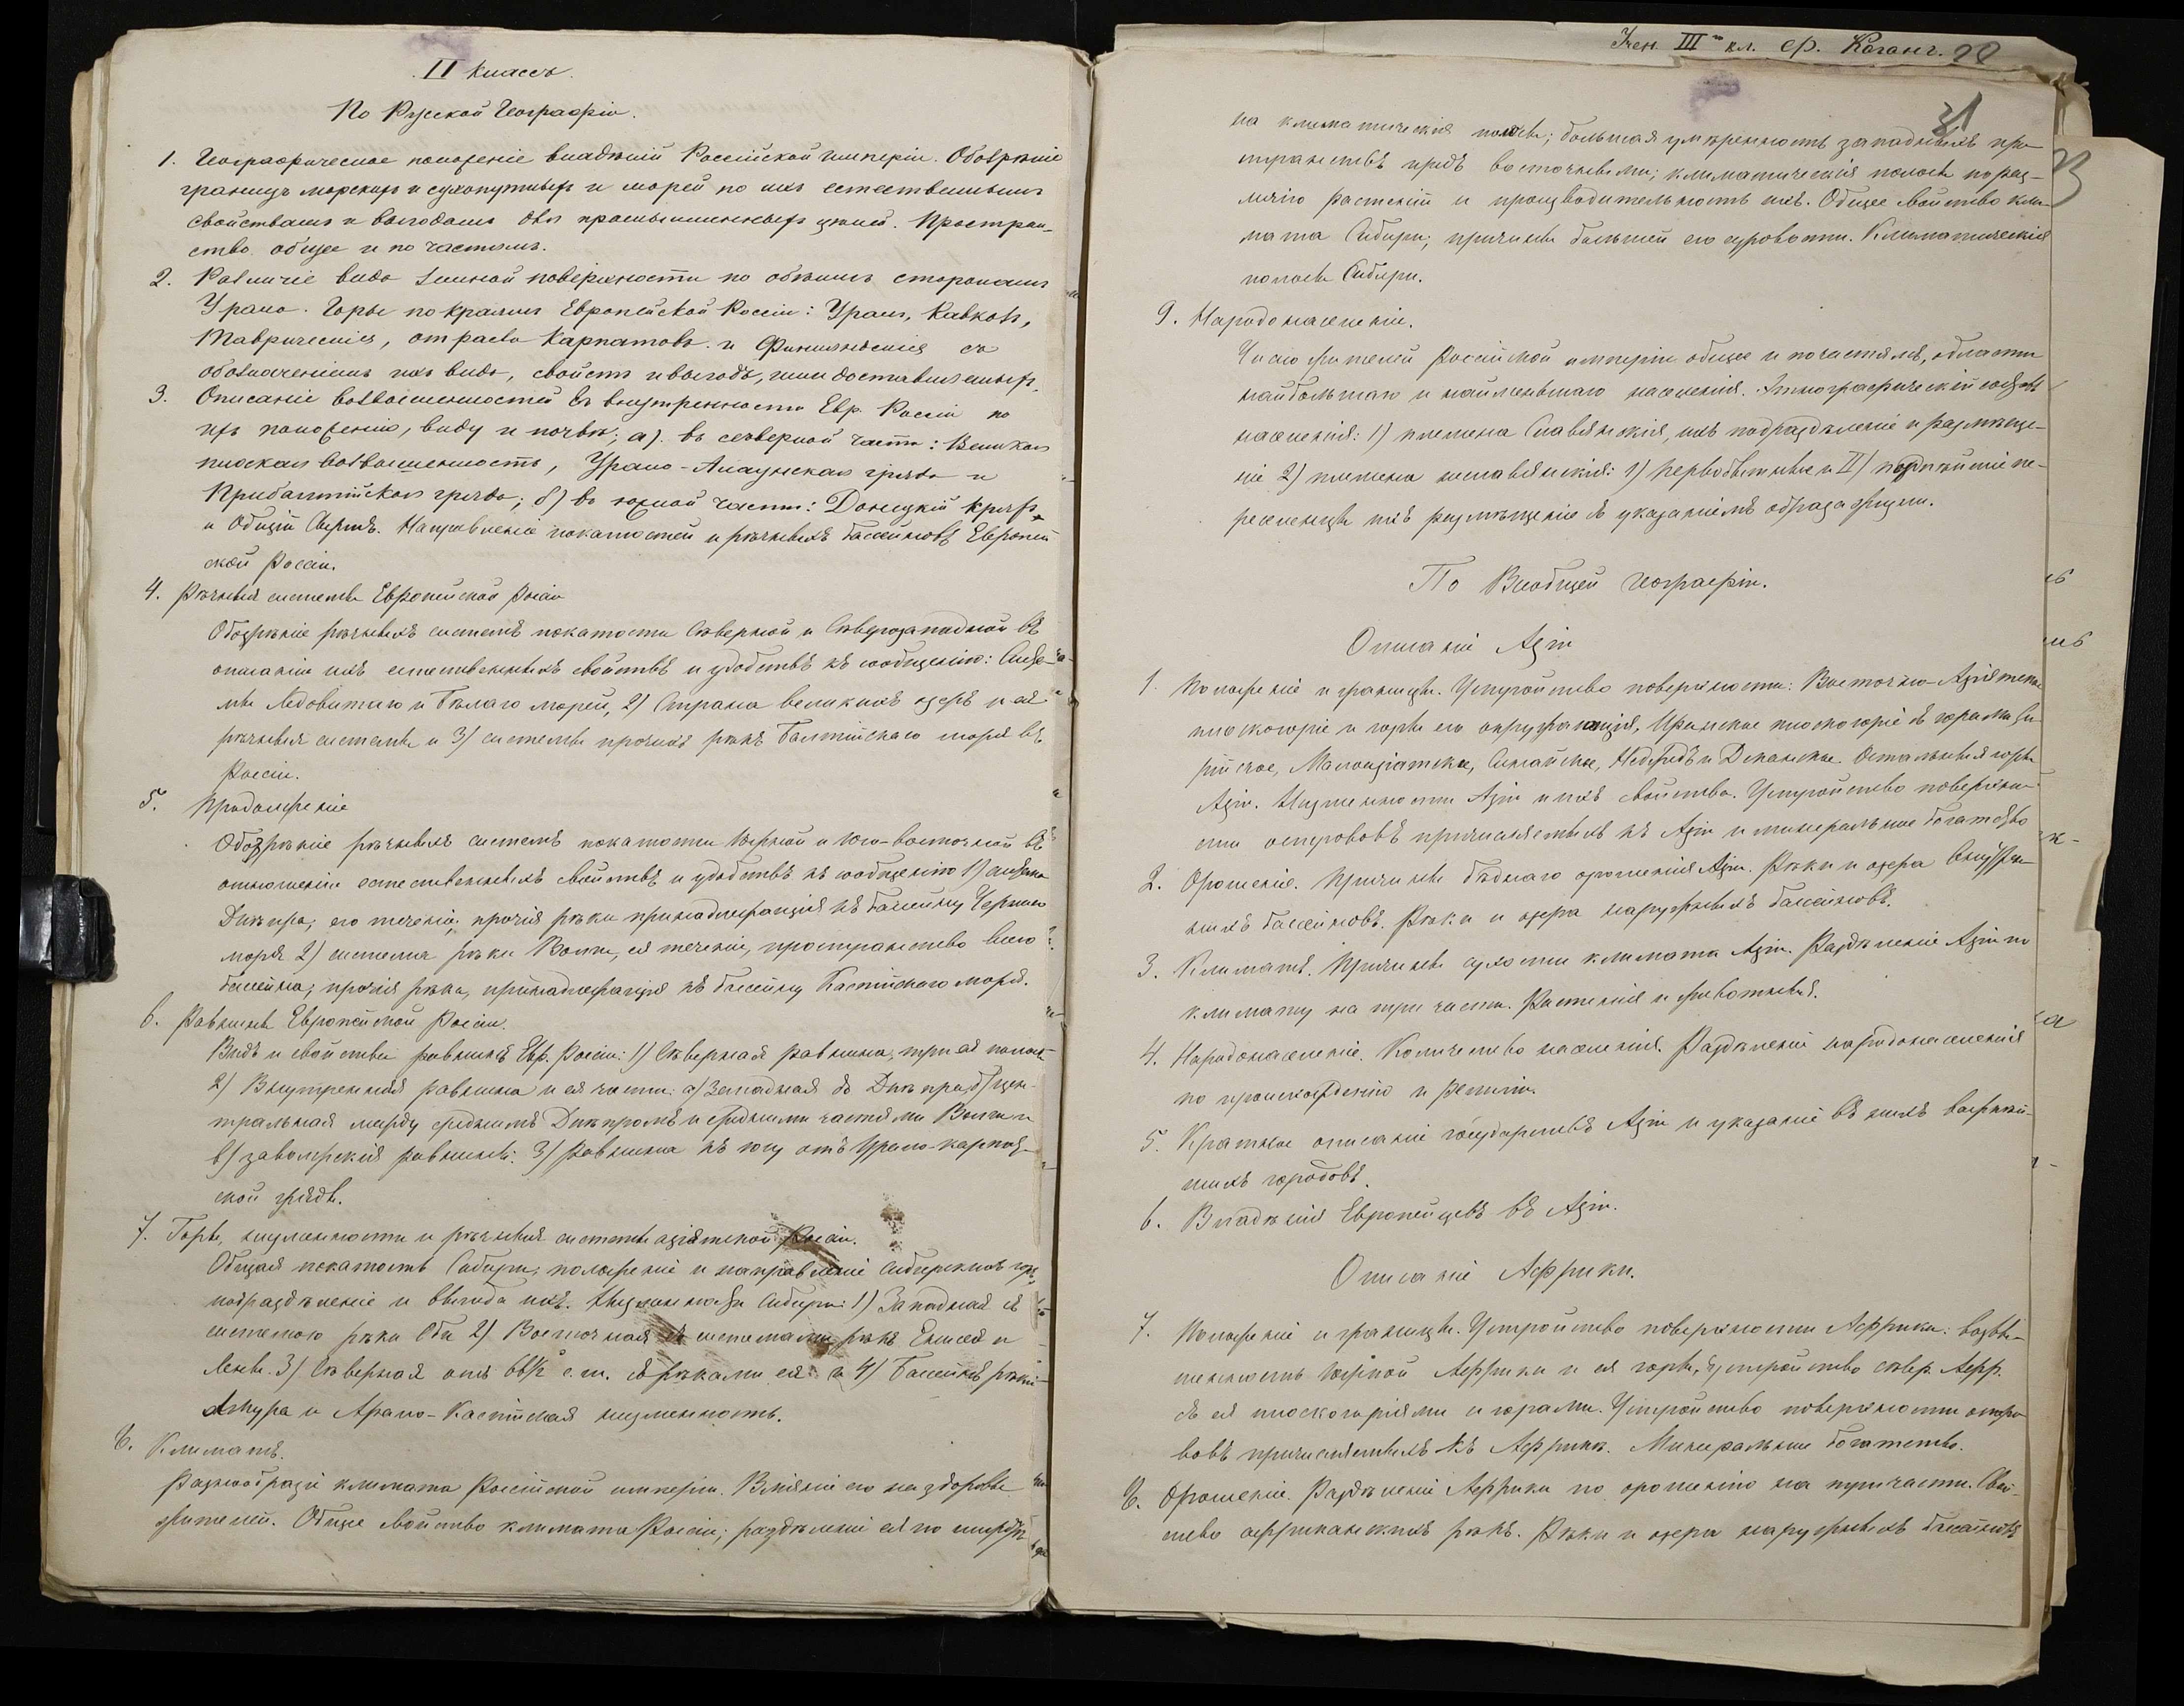 II классъ.
По Русской Географіи.
1. Географическое положеніе владѣній Россійской имперіи. Обозрѣніе
границъ морскихъ и сухопутныхъ и морей по ихъ естественнымъ
свойствамъ и выгодамъ для промышленныхъ цѣлей. Простран-
ство общее и по частямъ.
2. Различіе вида земной поверхности по обѣимъ сторонамъ
Урала. Горы по краямъ Европейской Россіи: Уралъ, Кавказъ,
Таврическія, отрасль Карпатовъ и Финляндскія съ
обозначеніемъ ихъ вида, свойствъ и выгодъ, ими доставляемыхъ.
3. Описаніе возвышенностей въ внутренности Евр. Россіи по
ихъ положенію, виду и почвѣ; а). въ сѣверной части: Великая
плоская возвышенность, Урало-Алаунская гряда и
Прибалтійская гряда; б) въ южной части: Донецкій кряжъ
и Общій Сыртъ. Направленіе покатостей и рѣчныхъ бассейновъ Европей
ской Россіи.
4. Рѣчныя системы Европейской Росіи
Обозрѣніе рѣчныхъ системъ покатости Сѣверной и Сѣверозападной въ
описаніи ихъ естественныхъ свойствъ и удобствъ къ сообщенію: Систе-
мы Ледовитаго и Бѣлаго морей, 2) Страна великихъ озеръ и ея
рѣчныя системы и 3) системы прочихъ рѣкъ Балтійскаго моря въ
Росіи.
5. Продолженіе
Обозрѣніе рѣчныхъ системъ покатости Южной и Юго-восточной въ
отношеніи естественныхъ свойствъ и удобствъ къ сообщенію 1) система
Днѣпра, его теченіе; прочія рѣки принадлежащія къ бассейну Чернаго
моря 2) система рѣки Волги, ея теченіе, пространство всего
бассейна; прочія рѣки, принадлежащія къ бассейну Каспійскаго моря.
6. Равнины Европейской Росіи.
Видъ и свойства равнинъ Евр. Росіи: 1) Сѣверная равнина, три ея полосы
2) Внутренняя равнина и ея части: а) Западная до Днѣпра б) цен-
тральная между среднимъ Днѣпромъ и средними частями Волги и
в) заволжскія равнины. 3) Равнина къ югу отъ Урало-карпат-
ской гряды.
7. Горы, низменности и рѣчныя системы азіятской Росіи.
Общая покатость Сибири; положеніе и направленіе Сибирскихъ горъ,
подраздѣленіе и выгода ихъ. Низменности Сибири: 1) Западная съ
системою рѣки Оби 2) Восточная съ системами рѣкъ Енисея и
Лены. 3) Сѣверная отъ 66½ с. ш. съ рѣками ея и 4) Бассейнъ рѣки
Амура и Арало-Каспійская низменность.
8. Климатъ.
Разнообразіе климата Россійской имперіи. Вліяніе его на здоровье
жителей. Общее свойство климата Росіи; раздѣленіе ея по широтѣ
Учен. III го кл. ср. Каганъ. 22
31
на климатическія полосы; большая умѣренность западныхъ про-
странствъ предъ восточными; климатическія полосы по раз-
личію растеній и производительность ихъ. Общее свойство кли-
мата Сибири; причины большей его суровости. Климатическія
полосы Сибири.
9. Народонаселеніе.
Число жителей Россійской имперіи общее и по частямъ, области
наибольшаго и наименьшаго населенія. Этнографическій составъ
населенія: 1) племена Славянскія, ихъ подраздѣленіе и размѣще-
ніе 2) племена неславянскія: 1) первобытные и II) позднѣйшіе пе-
реселенцы ихъ размѣщеніе съ указаніемъ образа жизни.
По Всеобщей географіи.
Описаніе Азіи
1. Положеніе и границы. Устройство поверхности: Восточно-Азіятское
плоскогоріе и горы его окружающія, Иранское плоскогоріе съ горами Си-
рійское, Малоазіатское, Синайское, Недждъ и Деканское. Остальныя горы
Азіи. Низменности Азіи и ихъ свойства. Устройство поверхно-
сти острововъ причисляемыхъ къ Азіи и минеральное богатство
2. Орошеніе. Причины бѣднаго орошенія Азіи. Рѣки и озера внутрен-
нихъ бассейновъ. Рѣки и озера наружныхъ бассейновъ.
3. Климатъ. Причины сухости климата Азіи. Раздѣленіе Азіи по
климату на три части. Растенія и животныя.
4. Народонаселеніе. Количество населенія. Раздѣленіе народонаселенія
по происхожденію и религіи.
5. Краткое описаніе государствъ Азіи и указаніе въ нихъ важнѣй-
шихъ городовъ.
6. Владѣнія Европейцевъ въ Азіи.
Описаніе Аффрики.
7. Положеніе и границы. Устройство поверхности Аффрики: возвы-
шенность Южной Аффрики и ея горы, устройство сѣвер. Афр.
съ ея плоскогоріями и горами. Устройство поверхности остро-
вовъ причисляемыхъ къ Аффрикѣ. Минеральное богатство.
8. Орошеніе. Раздѣленіе Аффрики по орошенію на три части. Свой-
ство аффриканскихъ рѣкъ. Рѣки и озера наружныхъ бассейновъ